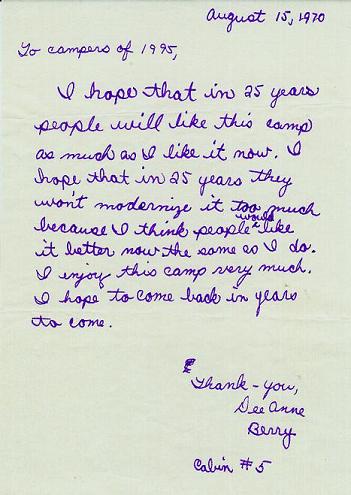 August 15, 1970
To campers of 1995,
I hope that in 25 years
people will like this camp
as much as I like it now. I
hope that in 25 years they
won't modernize it too much
because I think people would like
it better now the same as I do.
I enjoy this camp very much.
I hope to come back in years
to come.
Thank-you,
Dee Anne
Berry
Cabin #5